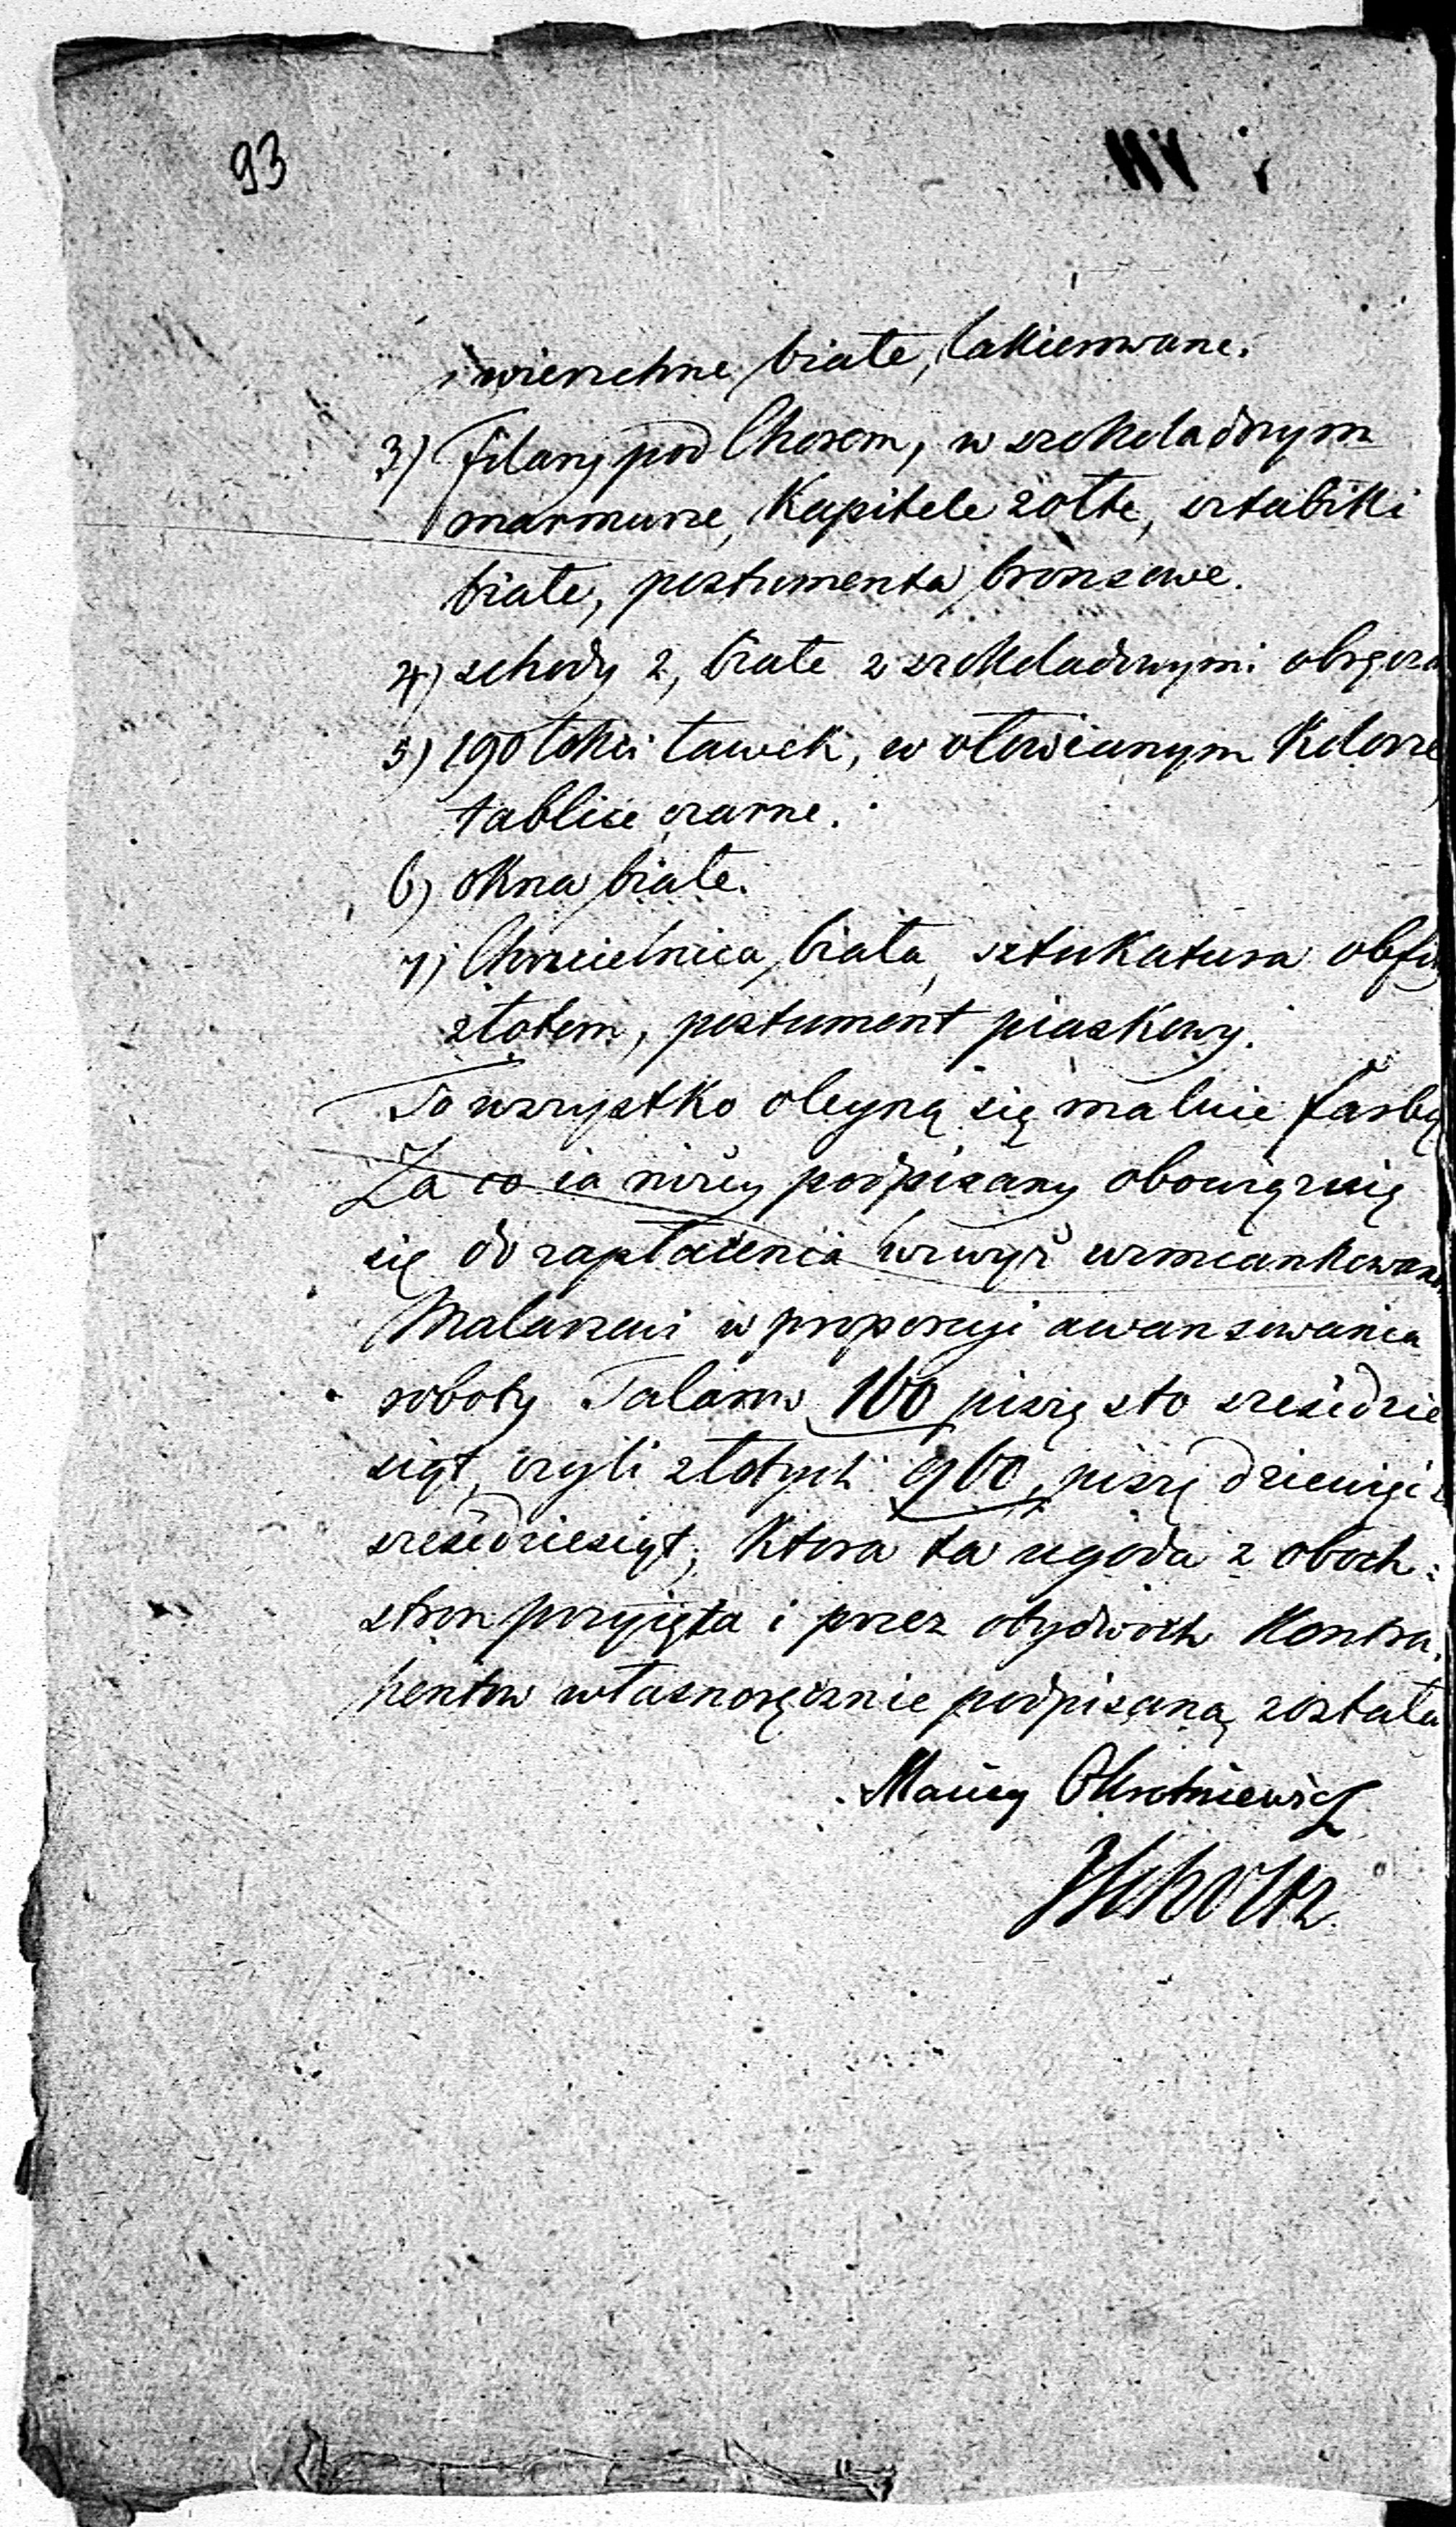 93
i wierzchne białe, lakierowane.
3) filary pod Chorem, w szokoladowym
marmurze, Kapitele zołte, sztabiki
białe, postumenta bronzowe.
4) schody 2, białe z szokoladowymi obręcza
5) 190 łokci ławek, w ołowianym Kolorze
tablice czarne.
6) okna białe.
7) Chrzcielnica biała, sztukatura
złotem, postument piaskowy.
To wszystko oleyną się maluie farbą
Za co ia niżey podpisany obowięzuię
się do zapłacenia wzwyż wzmiankowan
Malarzowi w proporcyi awansowania
roboty Talarow 160 piszę sto sześćdzie
siąt, czyli złotych 960, piszę dziewięć
sześćdziesiąt; Ktora ta ugoda z oboch
stron przyięta i przez obydwoch Kontra
hentow własnoręcznie podpisaną została
Maciey Okrotniewicz